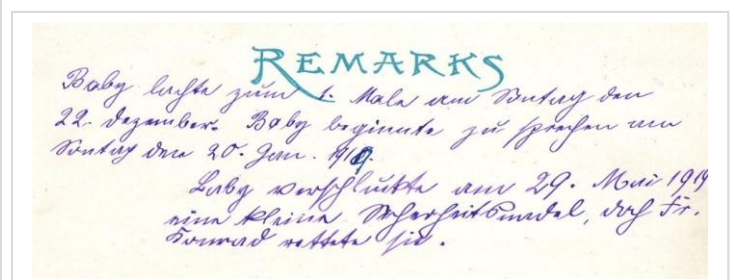 REMARKS
Baby lachte zum 1. Male am Sontag den
22. Dezember. Baby beginnte zu sprechen am
Sontag den 20. Jan. 1919.
Baby verschluckte am 29. Mai 1919
eine kleine Sicherheitsnadel, doch Fr.
Konrad rettete sie.